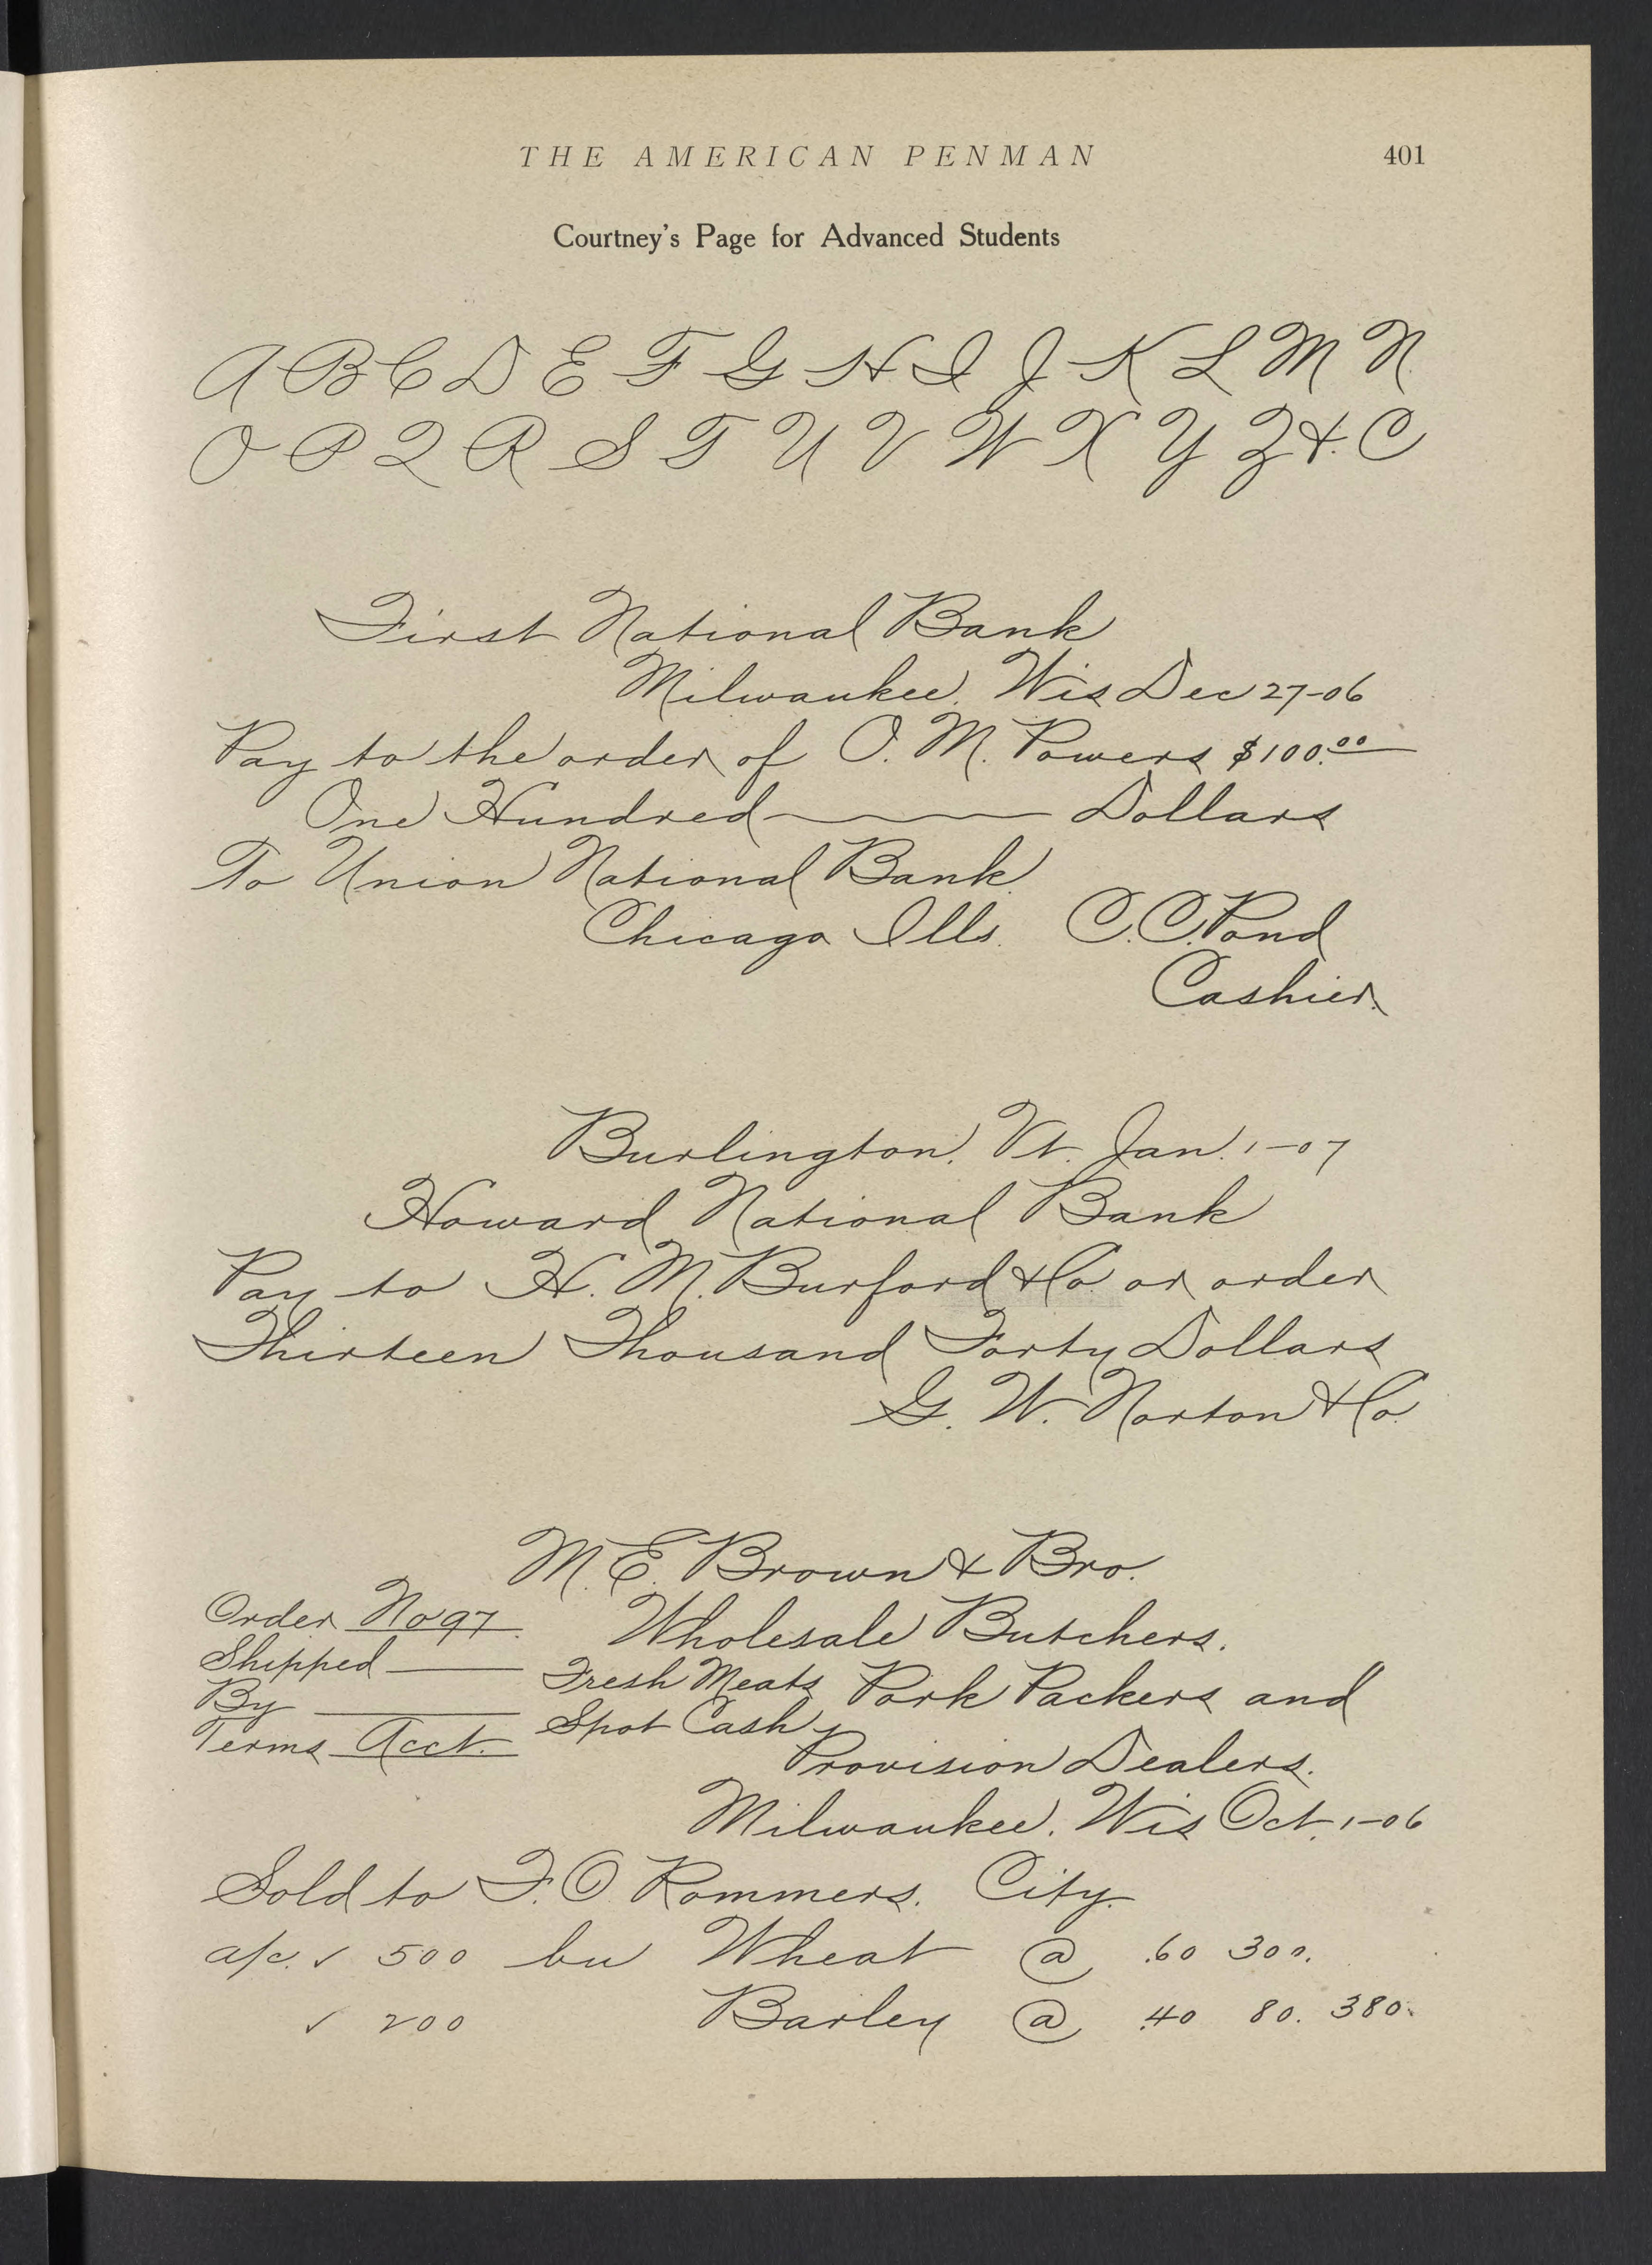 THE AMERICAN PENMAN 401
Courtney's Page for Advanced Students
A B C D E F G H I J K L M N
O P Q R S T U V W X Y Z &. C
First National Bank
Milwaukee, Wis Dec 27-06
Pay to the order of O. M. Powers $100.00
One Hundred Dollars
To Union National Bank
Chicago Ills. C. C. Pond
Cashier.
Burlington, Vt. Jan. 1-07
Howard National Bank
Pay to H. M. Burford & Co. or order
Thirteen Thousand Forty Dollars
G. W. Norton & Co.
M. E. Brown & Bro.
Order No 97. Wholesale Butchers.
Shipped Fresh Meats Pork Packers and
By Spot Cash
Terms Acct. Provision Dealers.
Milwaukee, Wis Oct. 1-06
Sold to F. O. Rommers. City.
a/c. ✓ 500 bu Wheat @ .60 300.
✓ 200 Barley @ .40 80. 380.